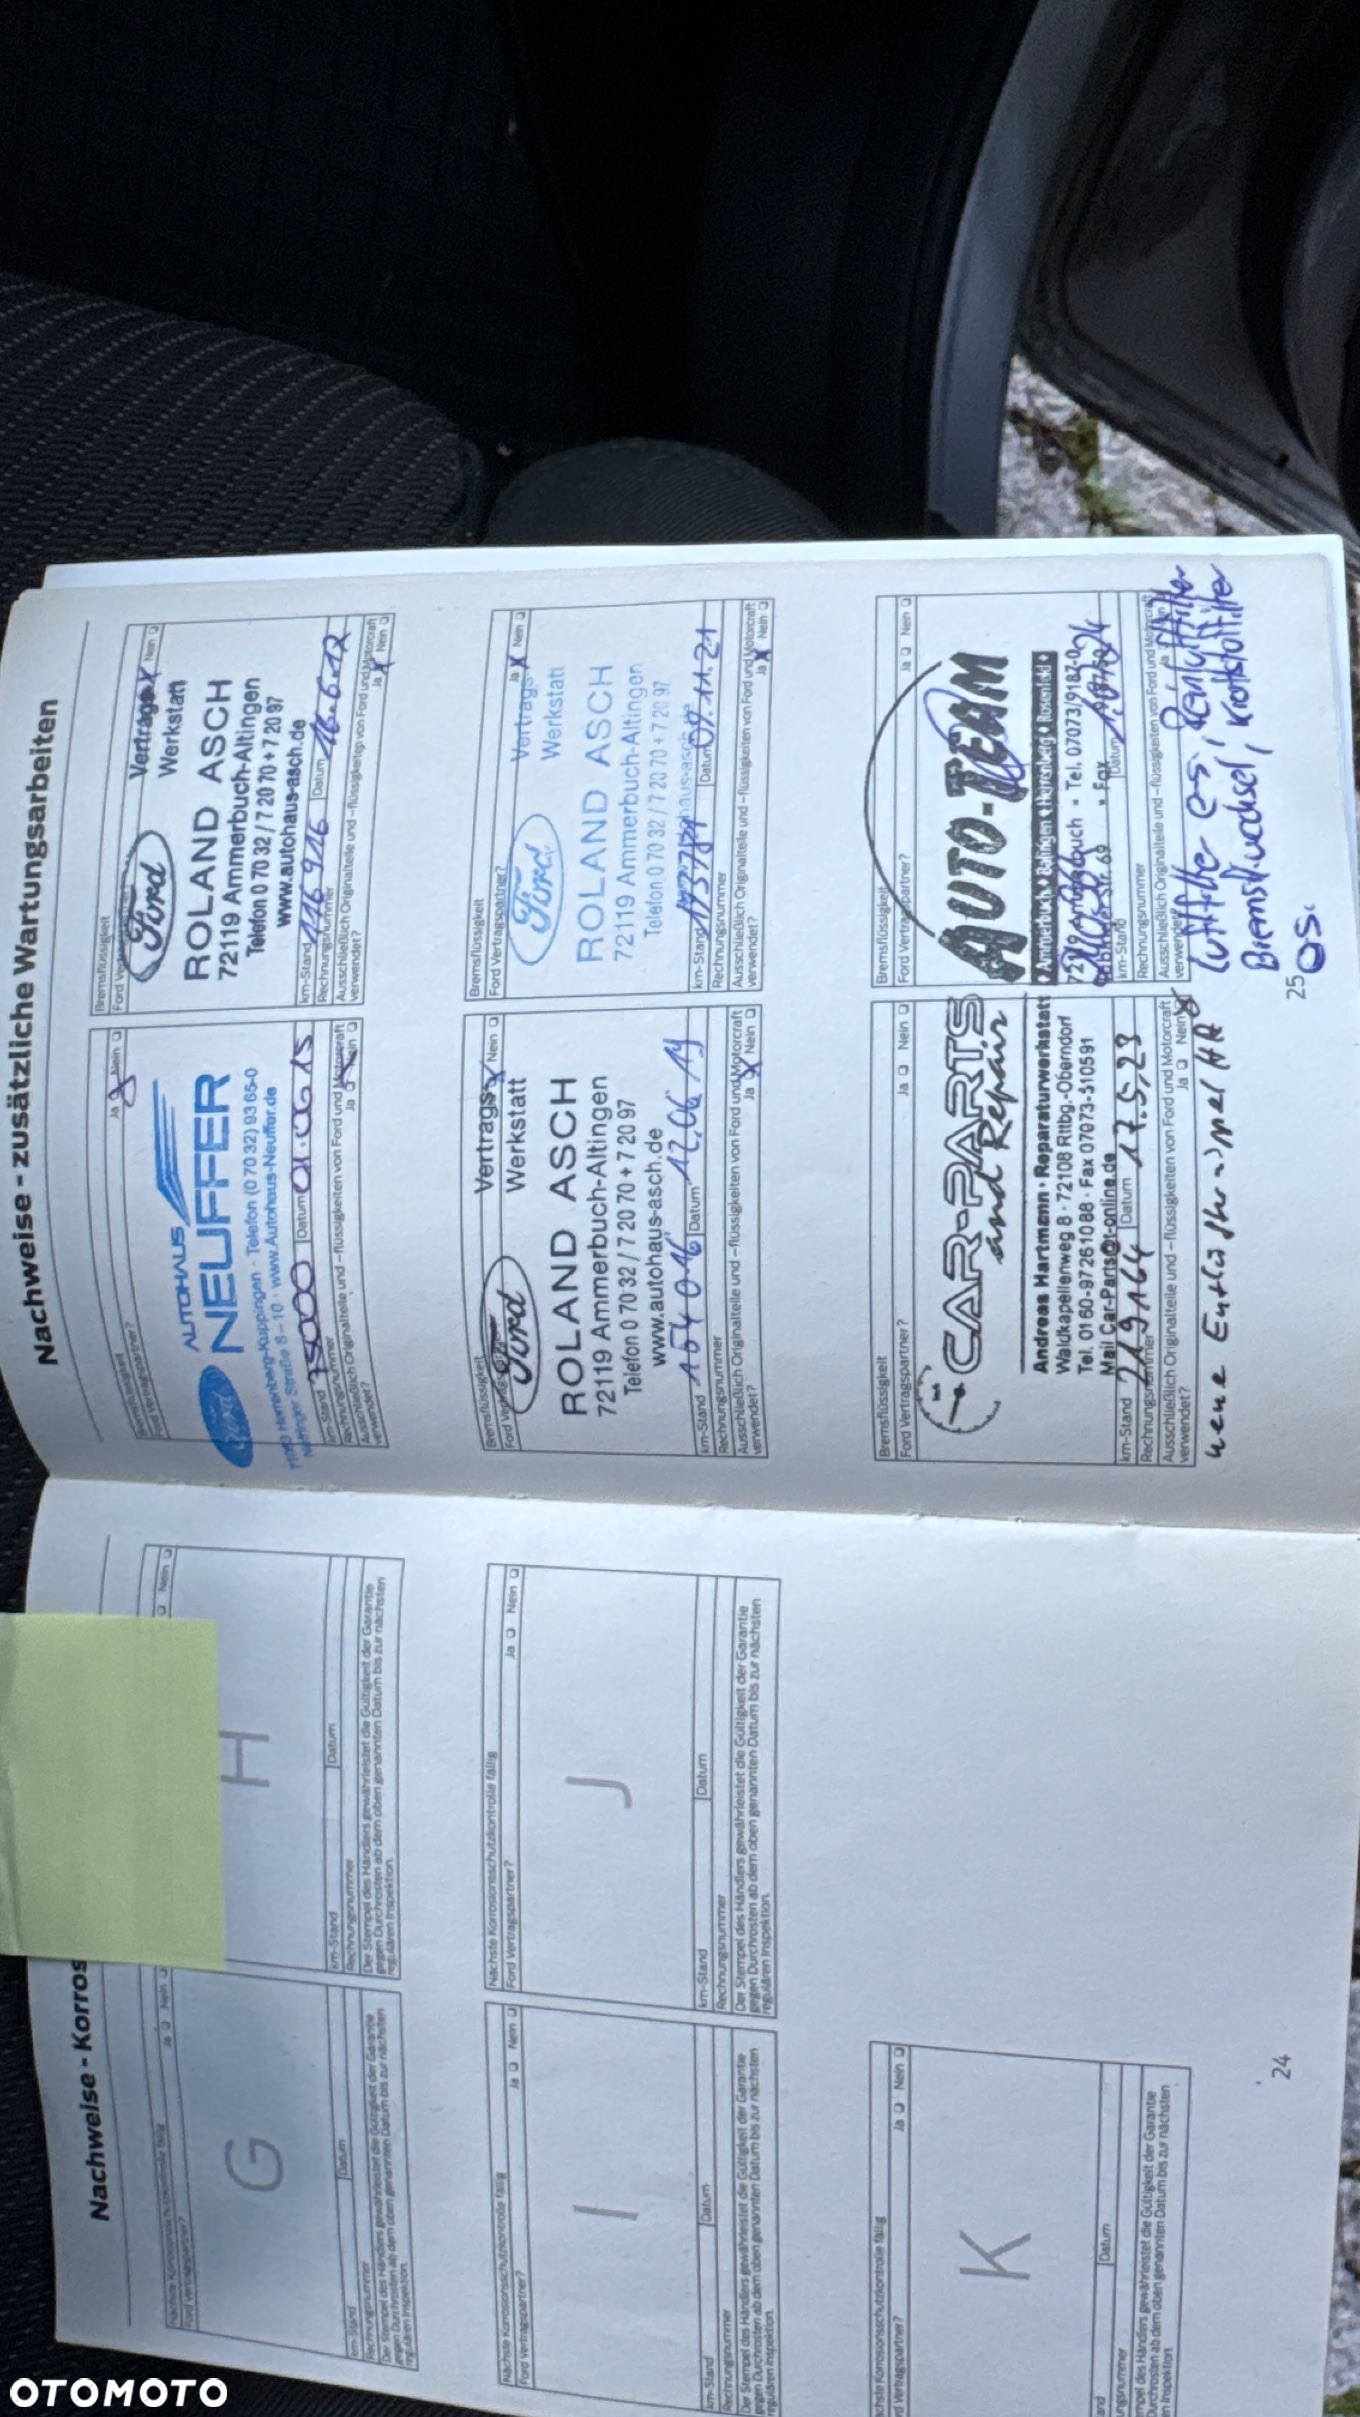 Nachweise - Korros
Ja ❏ Nein ❏
G
km-Stand
Datum
Rechnungsnummer
Der Stempel des Händlers gewährleistet die Gültigkeit der Garantie
gegen Durchrosten ab dem oben genannten Datum bis zur nächsten
regulären Inspektion.
❏ Nein ❏
H
km-Stand
Datum
Rechnungsnummer
Der Stempel des Händlers gewährleistet die Gültigkeit der Garantie
gegen Durchrosten ab dem oben genannten Datum bis zur nächsten
regulären Inspektion.
Nächste Korrosionsschutzkontrolle fällig
Ford Vertragspartner?
Ja ❏ Nein ❏
I
km-Stand
Datum
Rechnungsnummer
Der Stempel des Händlers gewährleistet die Gültigkeit der Garantie
gegen Durchrosten ab dem oben genannten Datum bis zur nächsten
regulären Inspektion.
Nächste Korrosionsschutzkontrolle fällig
Ford Vertragspartner?
Ja ❏ Nein ❏
J
km-Stand
Datum
Rechnungsnummer
Der Stempel des Händlers gewährleistet die Gültigkeit der Garantie
gegen Durchrosten ab dem oben genannten Datum bis zur nächsten
regulären Inspektion.
chste Korrosionsschutzkontrolle fällig
rd Vertragspartner?
Ja ❏ Nein ❏
K
and
Datum
ungsnummer
empel des Händlers gewährleistet die Gültigkeit der Garantie
Durchrosten ab dem oben genannten Datum bis zur nächsten
n Inspektion.
24
Nachweise - zusätzliche Wartungsarbeiten
Bremsflüssigkeit
Ford Vertragspartner?
Ja Nein ❏
AUTOHAUS
NEUFFER
Herrenberg-Kuppingen · Telefon (0 70 32) 9 93 65-0
Straße 8-10 · www.Autohaus-Neuffer.de
km-Stand
Datum 01.06.15
Rechnungsnummer
Ausschließlich Originalteile und –flüssigkeiten von Ford und Motorcraft
verwendet?
Ja ❏ Nein ❏
Bremsflüssigkeit
Nein ❏
Ford
Vertrags
Werkstatt
ROLAND ASCH
72119 Ammerbuch-Altingen
Telefon 0 70 32 / 7 20 70 + 7 20 97
www.autohaus-asch.de
km-Stand 116 916 Datum 16.6.17
Rechnungsnummer
Ausschließlich Originalteile und –flüssigkeiten von Ford und Motorcraft
verwendet?
Ja Nein ❏
Bremsflüssigkeit
Nein ❏
Ford
Vertrags
Werkstatt
ROLAND ASCH
72119 Ammerbuch-Altingen
Telefon 0 70 32 / 7 20 70 + 7 20 97
www.autohaus-asch.de
km-Stand 154 016 Datum 12.06.19
Rechnungsnummer
Ausschließlich Originalteile und –flüssigkeiten von Ford und Motorcraft
verwendet?
Ja Nein ❏
Bremsflüssigkeit
Ford Vertragspartner?
Ja Nein ❏
Ford
Vertrags
Werkstatt
ROLAND ASCH
72119 Ammerbuch-Altingen
Telefon 0 70 32 / 7 20 70 + 7 20 97
km-Stand 193789 Datum 09.11.21
Rechnungsnummer
Ausschließlich Originalteile und –flüssigkeiten von Ford und Motorcraft
verwendet?
Ja Nein ❏
Bremsflüssigkeit
Ford Vertragspartner?
Ja ❏ Nein ❏
CAR-PARTS
and Repair
Andreas Hartmann · Reparaturwerkstatt
Waldkapellenweg 8 · 72108 Rttbg.-Oberndorf
Tel. 01 60-97 26 10 88 · Fax 07073-510591
Mail Car-Parts@t-online.de
km-Stand 219164 Datum 17.5.23
Rechnungsnummer
Ausschließlich Originalteile und –flüssigkeiten von Ford und Motorcraft
verwendet?
Ja ❏ Nein
neue
HA
Bremsflüssigkeit
Ford Vertragspartner?
Ja ❏ Nein ❏
AUTO-TEAM
Tel. 07073/9182-0
Fax
km-Stand
Datum
Rechnungsnummer
Ausschließlich Originalteile und –flüssigkeiten von Ford und Motorcraft
verwendet?
Luftfilter
Kraftstofffilter
25
OTOMOTO